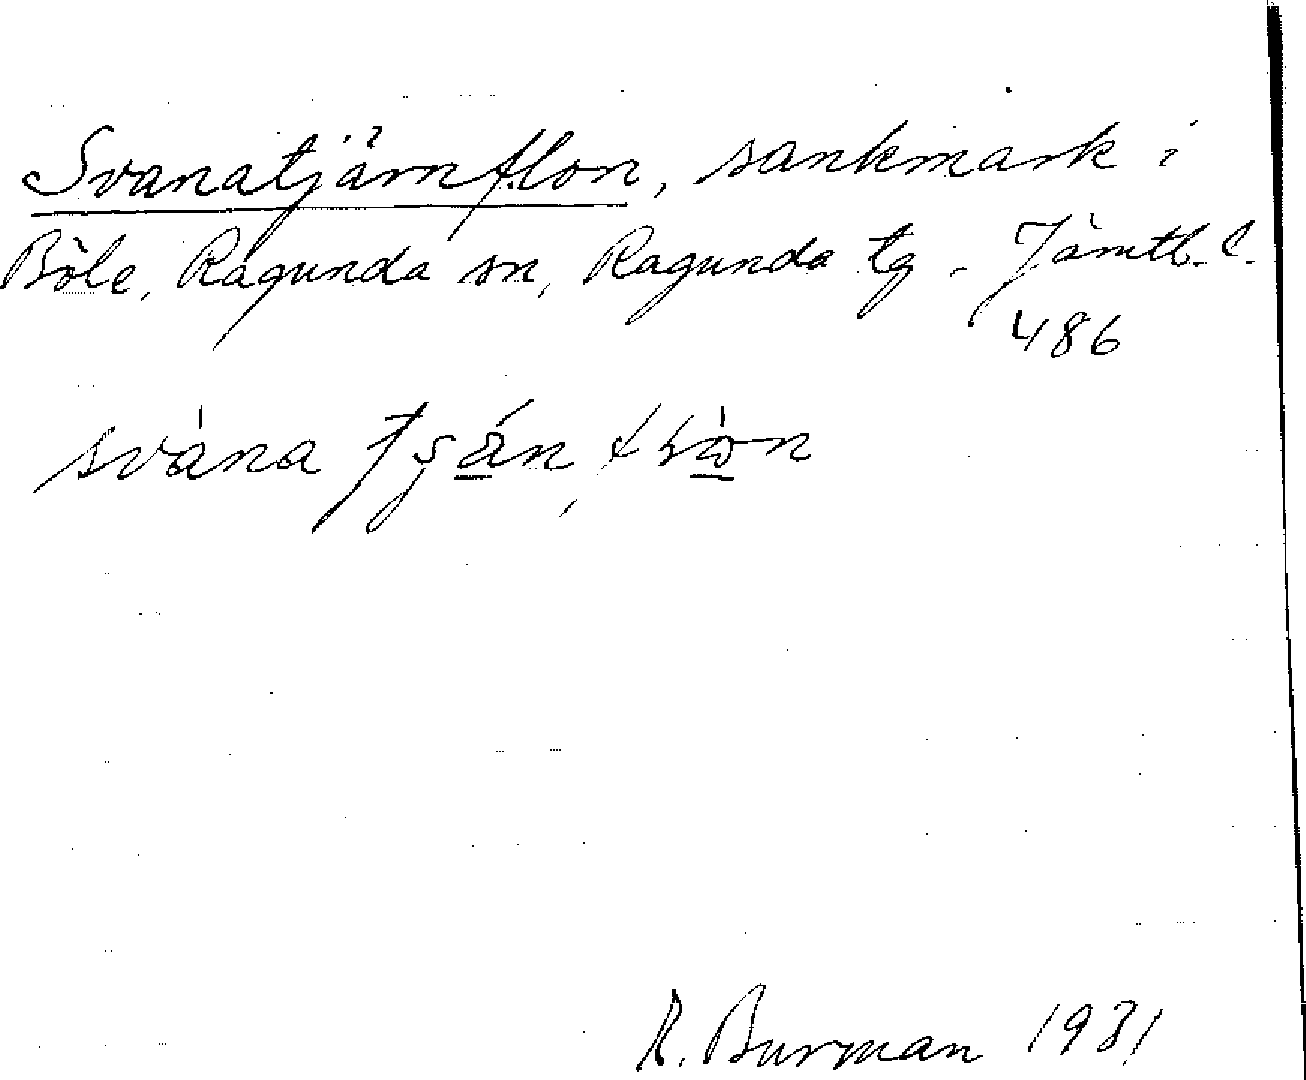 Svanatjärnflon, sankmark i
Böle, Ragunda sn, Ragunda tg. Jämtl. l.
486
svàna
R. Burman 1931